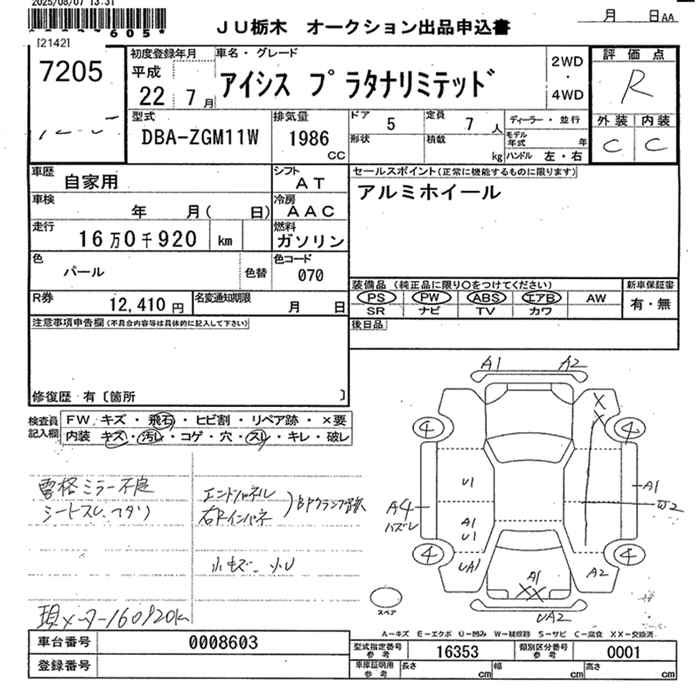 2025/08/07 13:31
605*
JU栃木 オークション出品申込書
月 日AA
[2142]
7205
初度登録年月
平成
22年 7月
車名・グレード
アイシス プラタナリミテッド
2WD
・
4WD
評価点
R
型式
DBA-ZGM11W
排気量
1986
CC
ドア 5
形状
定員 7人
積載 kg
ディーラー・並行
モデル年式 年
ハンドル 左・右
外装 内装
C C
車歴
自家用
シフト
AT
車検
年 月( 日)
冷房
AAC
走行
16万0千920 km
燃料
ガソリン
色
パール
色替
色コード
070
R券
12,410円
名変通知期限
月 日
セールスポイント(正常に機能するものに限ります)
アルミホイール
装備品 (純正品に限り〇をつけてください)
PS PW ABS エアB AW
SR ナビ TV カワ
新車保証書
有・無
後日品
注意事項申告欄(不具合内容等は具体的に記入して下さい)
修復歴 有〔箇所 〕
検査員記入欄
FW キズ・飛石・ヒビ割・リペア跡・×要
内装 キズ・汚レ・コゲ・穴・スレ・キレ・破レ
シートスレ、ヘタリ
エンドパネル
小キズ、小U
現メーター160920k
A1 A2
X
XX
4 4
U1
A1
U1
UA1
A4
バズレ
A1
W2
4 4
A1
XX
A2
UA2
スペア
A-キズ E-エクボ U-凹み W-補修跡 S-サビ C-腐食 XX-交換済
車台番号 0008603
登録番号
型式指定番号
参考
16353
類別区分番号
参考
0001
車庫証明用
参考
長さ cm 幅 cm 高さ cm